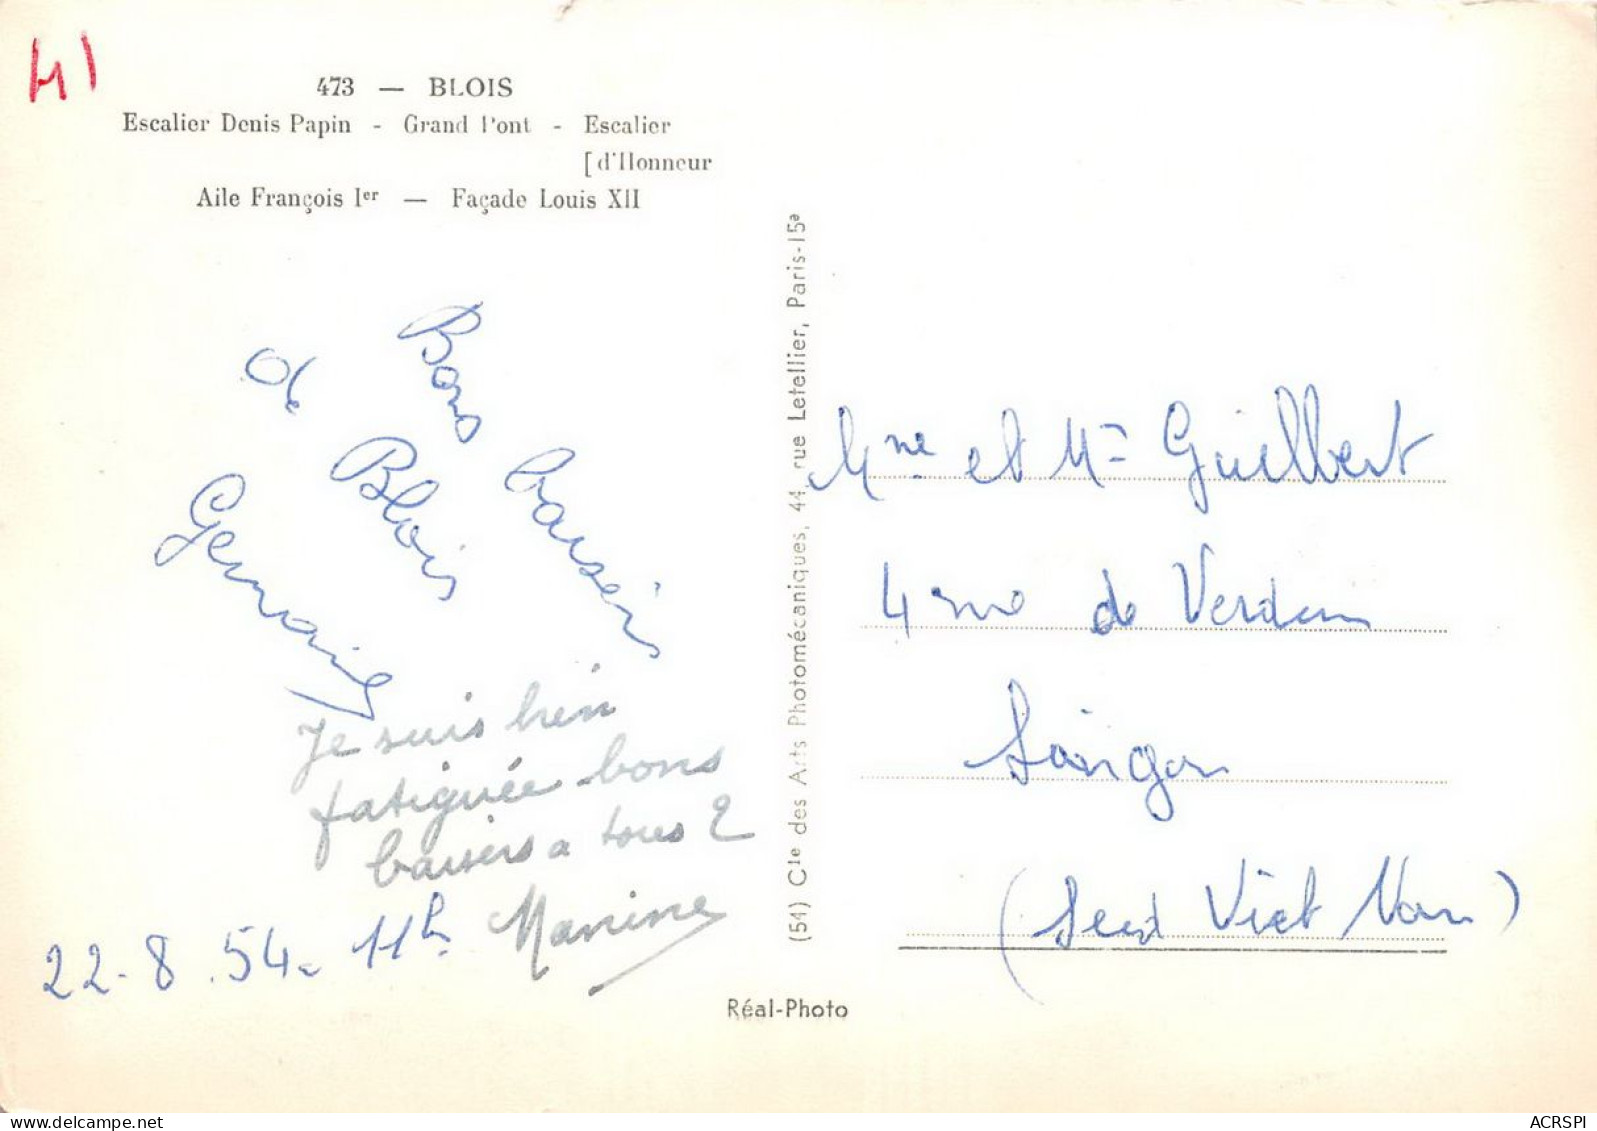 41
473 — BLOIS
Escalier Denis Papin - Grand Pont - Escalier
[d'Honneur
Aile François Ier — Façade Louis XII
Bons baisers
de Blois
Germaine
Je suis bien
fatiguée bons
baisers a tous 2
Manine
22-8.54. 11h
(54) Cie des Arts Photomécaniques, 44, rue Letellier, Paris-15e
Réal-Photo
Mme et Mr Guilbert
4 rue de Verdun
Saïgon
(Sud Viet Nam)
ACRSPI